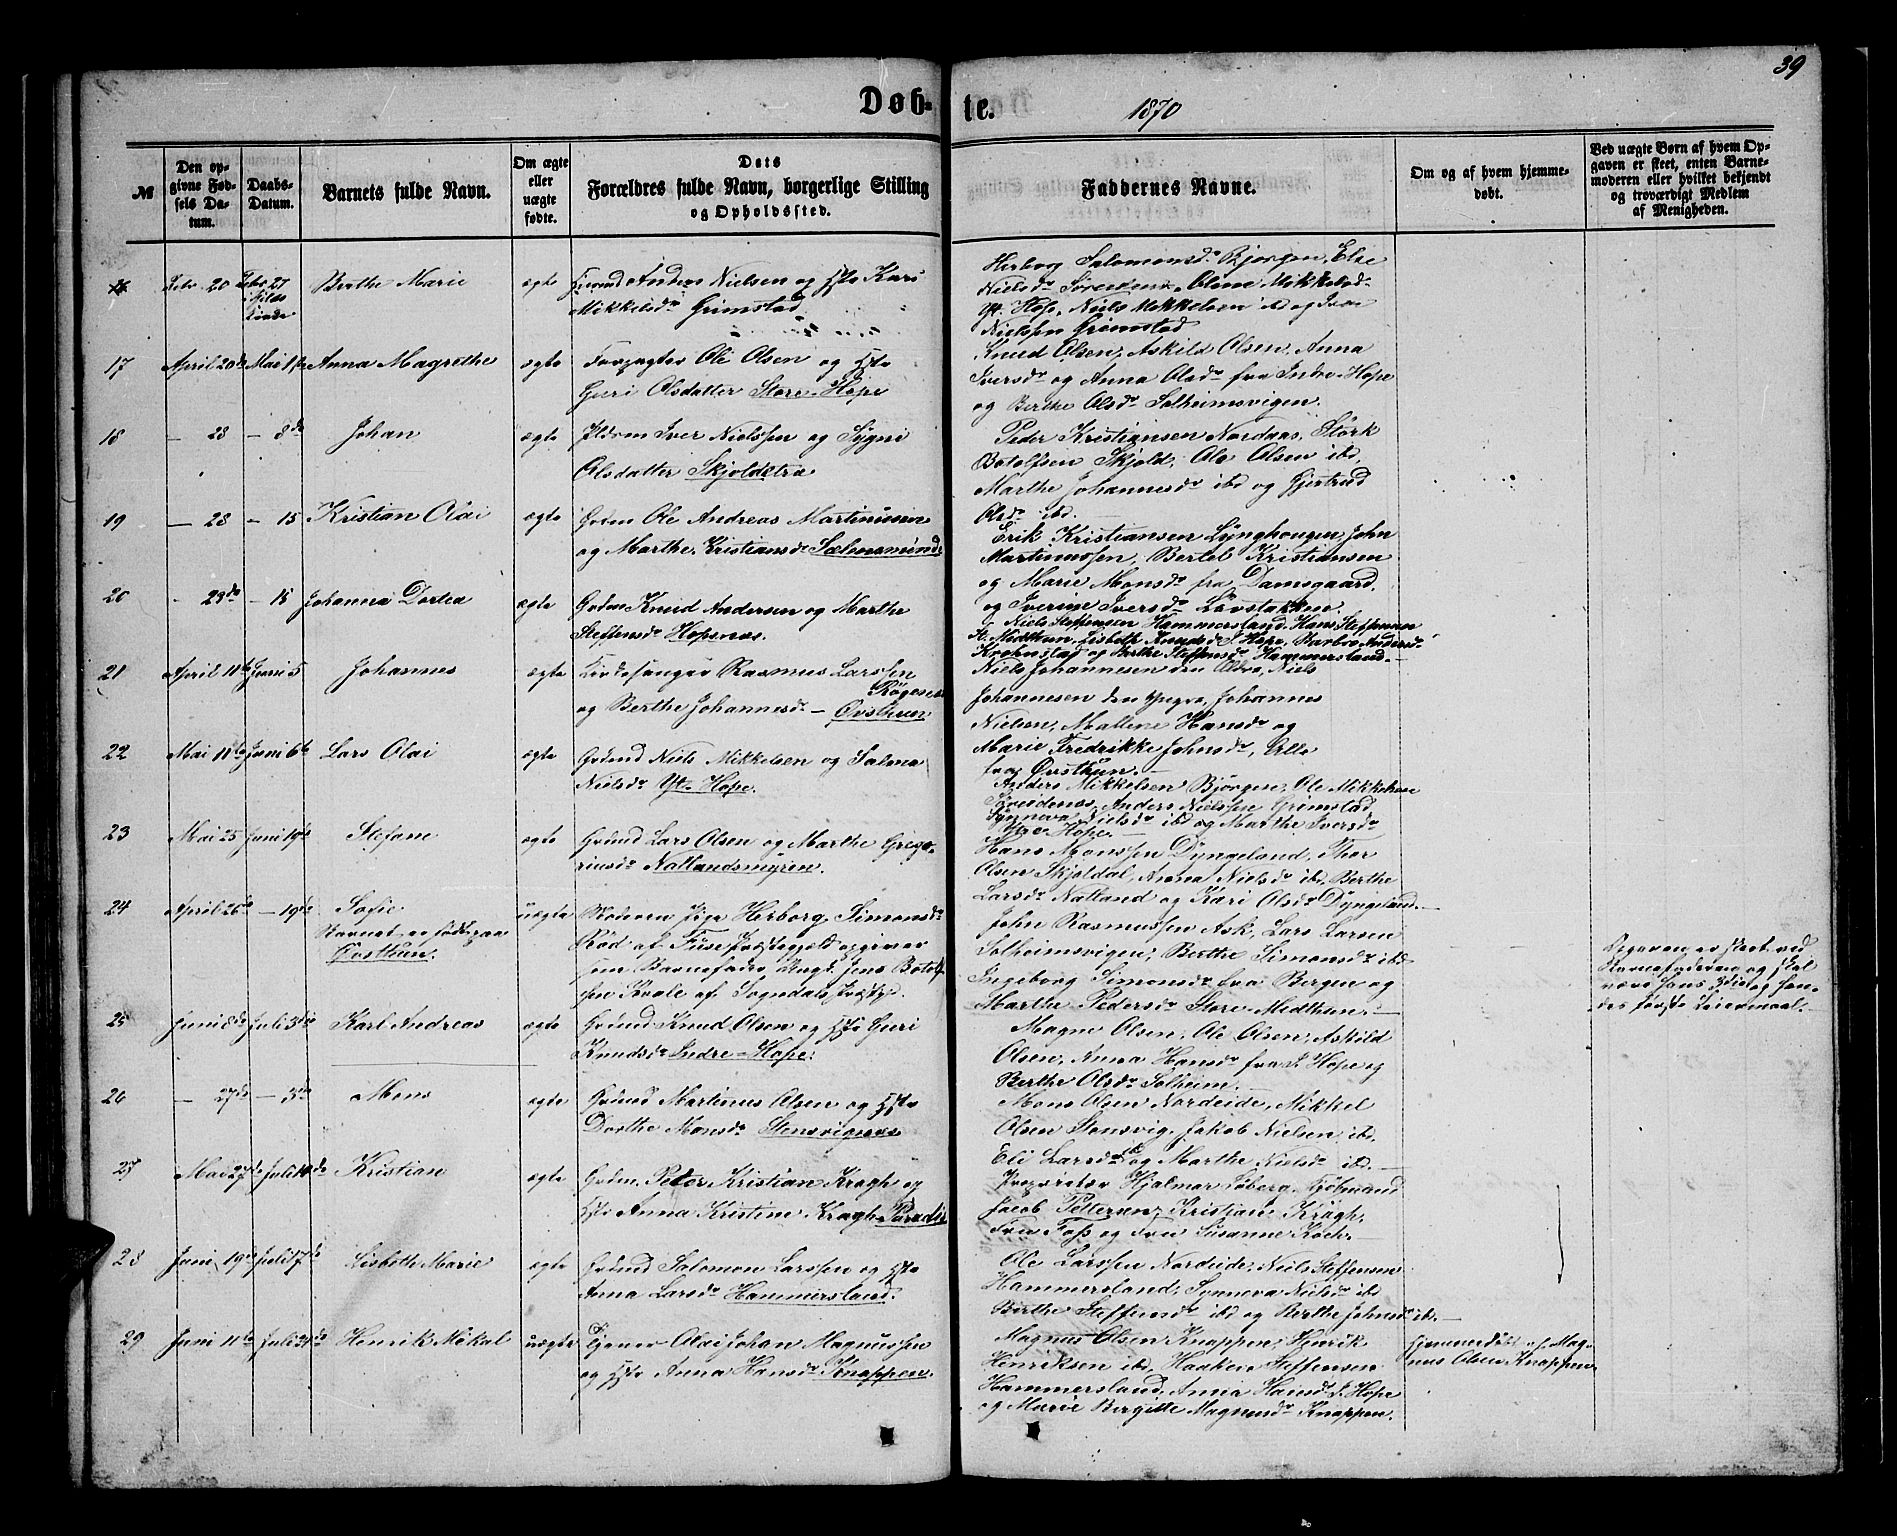 39
Døb-te. 1870
№
Den opgivne Fødsels Datum.
Daabs-Datum.
Barnets fulde Navn.
Om ægte eller uægte fødte.
Dets Forældres fulde Navn, borgerlige Stilling og Opholdssted.
Faddernes Navne.
Om og af hvem hjemmedøbt.
Ved uægte Børn af hvem Opgaven er skeet, enten Barnemoderen eller hvilket bekjendt og troværdigt Medlem af Menigheden.
Febr. 20 Febr 27 Berthe Marie ægte Anders Nielsen og Hst Kari
Mikkelsdr Grimstad
Herborg Salomonsdr Bjørgen, Else
Nielsdr Olene Mikkelsdr
Yt. Hope, Niels Mikkelsen ibd og Iver
Nielsen Grimstad
17 April 20de Mai 1ste Anna Magrethe ægte Forpagter Ole Olsen og Hst
Guri Olsdatter Store-Hope
Knud Olsen, Askild Olsen, Anna
Iversdr og Anna Olsdr fra Indre-Hope
og Berthe Olsdr Solheimsvigen.
18 – 23 – 8de Johan ægte Iver Nielssen og Sygni
Olsdatter Skjoldstræ
Peder Kristiansen Nordaas, Størk
Botolfsen Skjold, Ole Olsen ibd,
Marthe Johannesdr ibd og Gjertrud
Olsdr ibd.
19 – 23 – 15 Kristian Olai ægte Grdm Ole Andreas Martinussen
og Marthe Kristiansdr Sælensminde
Erik Kristiansen Lynghougen, John
Martinussen, Bertel Kristiansen
og Marie Monsdr fra Damsgaard,
og Iverine Iversdr Løvstakken
20 – 23de – 15 Johanna Dortea ægte Grdm Knud Andersen og Marthe
Steffensdr Hopsnæs.
Niels Steffensen Hammersland, Hans Steffensen
St. Midthun, Lisbeth Knudsdr I. Hope, Barbro Andersdr
Krohnstad og Berthe Steffensdr Hammersland.
21 April 11te Juni 5 Johannes ægte Kirkesanger Rasmus Larssen
Røgenes
og Berthe Johannesdr – Øvsthun.
Niels Johannesen den Ældre, Niels
Johannesen den Yngre, Johannes
Nielsen, Mallene Hansdr og
Marie Fredrikke Johnsdr, Alle
fra Øvsthun.
22 Mai 11te Juni 6te Lars Olai ægte Grdmd Niels Mikkelsen og Salmø
Nielsdr Yt. Hope.
Anders Mikkelsen Bjørgen, Ole Mikkelsen
Anders Nielssen Grimstad,
Synneva Nielsdr ibd og Marthe Iversdr
Ytre Hope.
23 Mai 25 Juni 19de Stefane ægte Grdmd Lars Olsen og Marthe Grego-
riusdr Natlandsmyren.
Hans Monssen Dyngeland, Thor
Olsen Skjoldal, Anna Nielsdr ibd, Berthe
Larsdr Natland og Kari Olsdr Dyngeland.
24 April 26de – 19de Sofie
Barnet er født paa
Øvsthun.
uægte Moderen Pige Herborg Simonsdr
Rød af Fuse Præstegjeld opgiver
som Barnefader, Ungk. Jens Botolf-
sen Kvale af Sogndals Præstgj.
John Rasmussen Ask, Lars Larsen
Solheimsvigen, Berthe Simonsdr ibd
Ingeborg Simonsdr fra Bergen og
Marthe Pedersdr Store-Midthun.
Opgaven er skeet ved
Barnefaderen og skal
være hans og hen-
des første Leiermaal.
25 Juni 8de Juli 3die Karl Andreas ægte Grdmd Knud Olsen og Hst Guri
Knudsdr Indre-Hope.
Magne Olsen, Ole Olsen, Askild
Olsen, Anna Hansdr fra I. Hope og
Berthe Olsdr Solheim.
26 – 27de – 3die Mons ægte Grdmd Martinus Olsen og Hst
Dorthe Monsdr Stensvignæs
Mons Olsen Nordeide, Mikkel
Olsen Stensvig, Jakob Nielsen ibd,
Eli Larsdr ibd og Marthe Nielsdr ibd.
27 Mai 27de Juli 10de Kristian ægte Grdm. Peter Kristian Kragh og
Hst Anna Kristine Kragh Paradis
Proprietær Hjalmar Løberg, Kjøbmand
Jacob Pettersen, Kristian Kragh,
Fru Foss og Fru Susanne Koch.
28 Juni 19de Juli 17de Lisbeth Marie ægte Grdmd Salomon Larssen og Hst
Anna Larsdr Hammersland.
Ole Larssen Nordeide, Niels Steffensen
Hammersland, Synneva Nielsdr ibd
Berthe Steffensdr ibd og Berthe Johnsdr ibd.
29 Juni 11te Juli 31te Henrik Mikal uægte Tjener Olai Johan Magnussen
og Hst Anna Hansdr Knappen.
Magnus Olsen Knappen, Henrik
Henriksen ibd, Haaken Steffensen
Hammersland, Anna Hansdr I. Hope
og Marie Birgitte Magnusdr Knappen.
Hjemmedøbt af Mag-
nus Olsen Knappen.